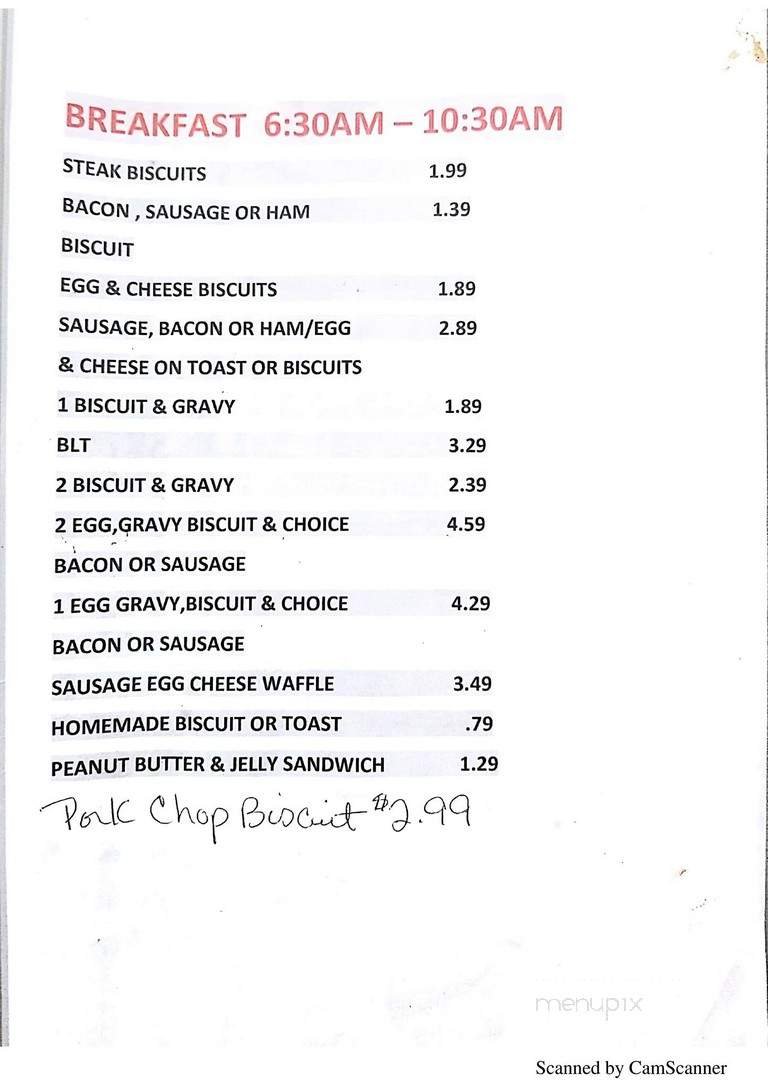 BREAKFAST 6:30AM – 10:30AM
STEAK BISCUITS 1.99
BACON , SAUSAGE OR HAM 1.39
BISCUIT
EGG & CHEESE BISCUITS 1.89
SAUSAGE, BACON OR HAM/EGG 2.89
& CHEESE ON TOAST OR BISCUITS
1 BISCUIT & GRAVY 1.89
BLT 3.29
2 BISCUIT & GRAVY 2.39
2 EGG,GRAVY BISCUIT & CHOICE 4.59
BACON OR SAUSAGE
1 EGG GRAVY,BISCUIT & CHOICE 4.29
BACON OR SAUSAGE
SAUSAGE EGG CHEESE WAFFLE 3.49
HOMEMADE BISCUIT OR TOAST .79
PEANUT BUTTER & JELLY SANDWICH 1.29
Pork Chop Biscuit $2.99
menupix
Scanned by CamScanner